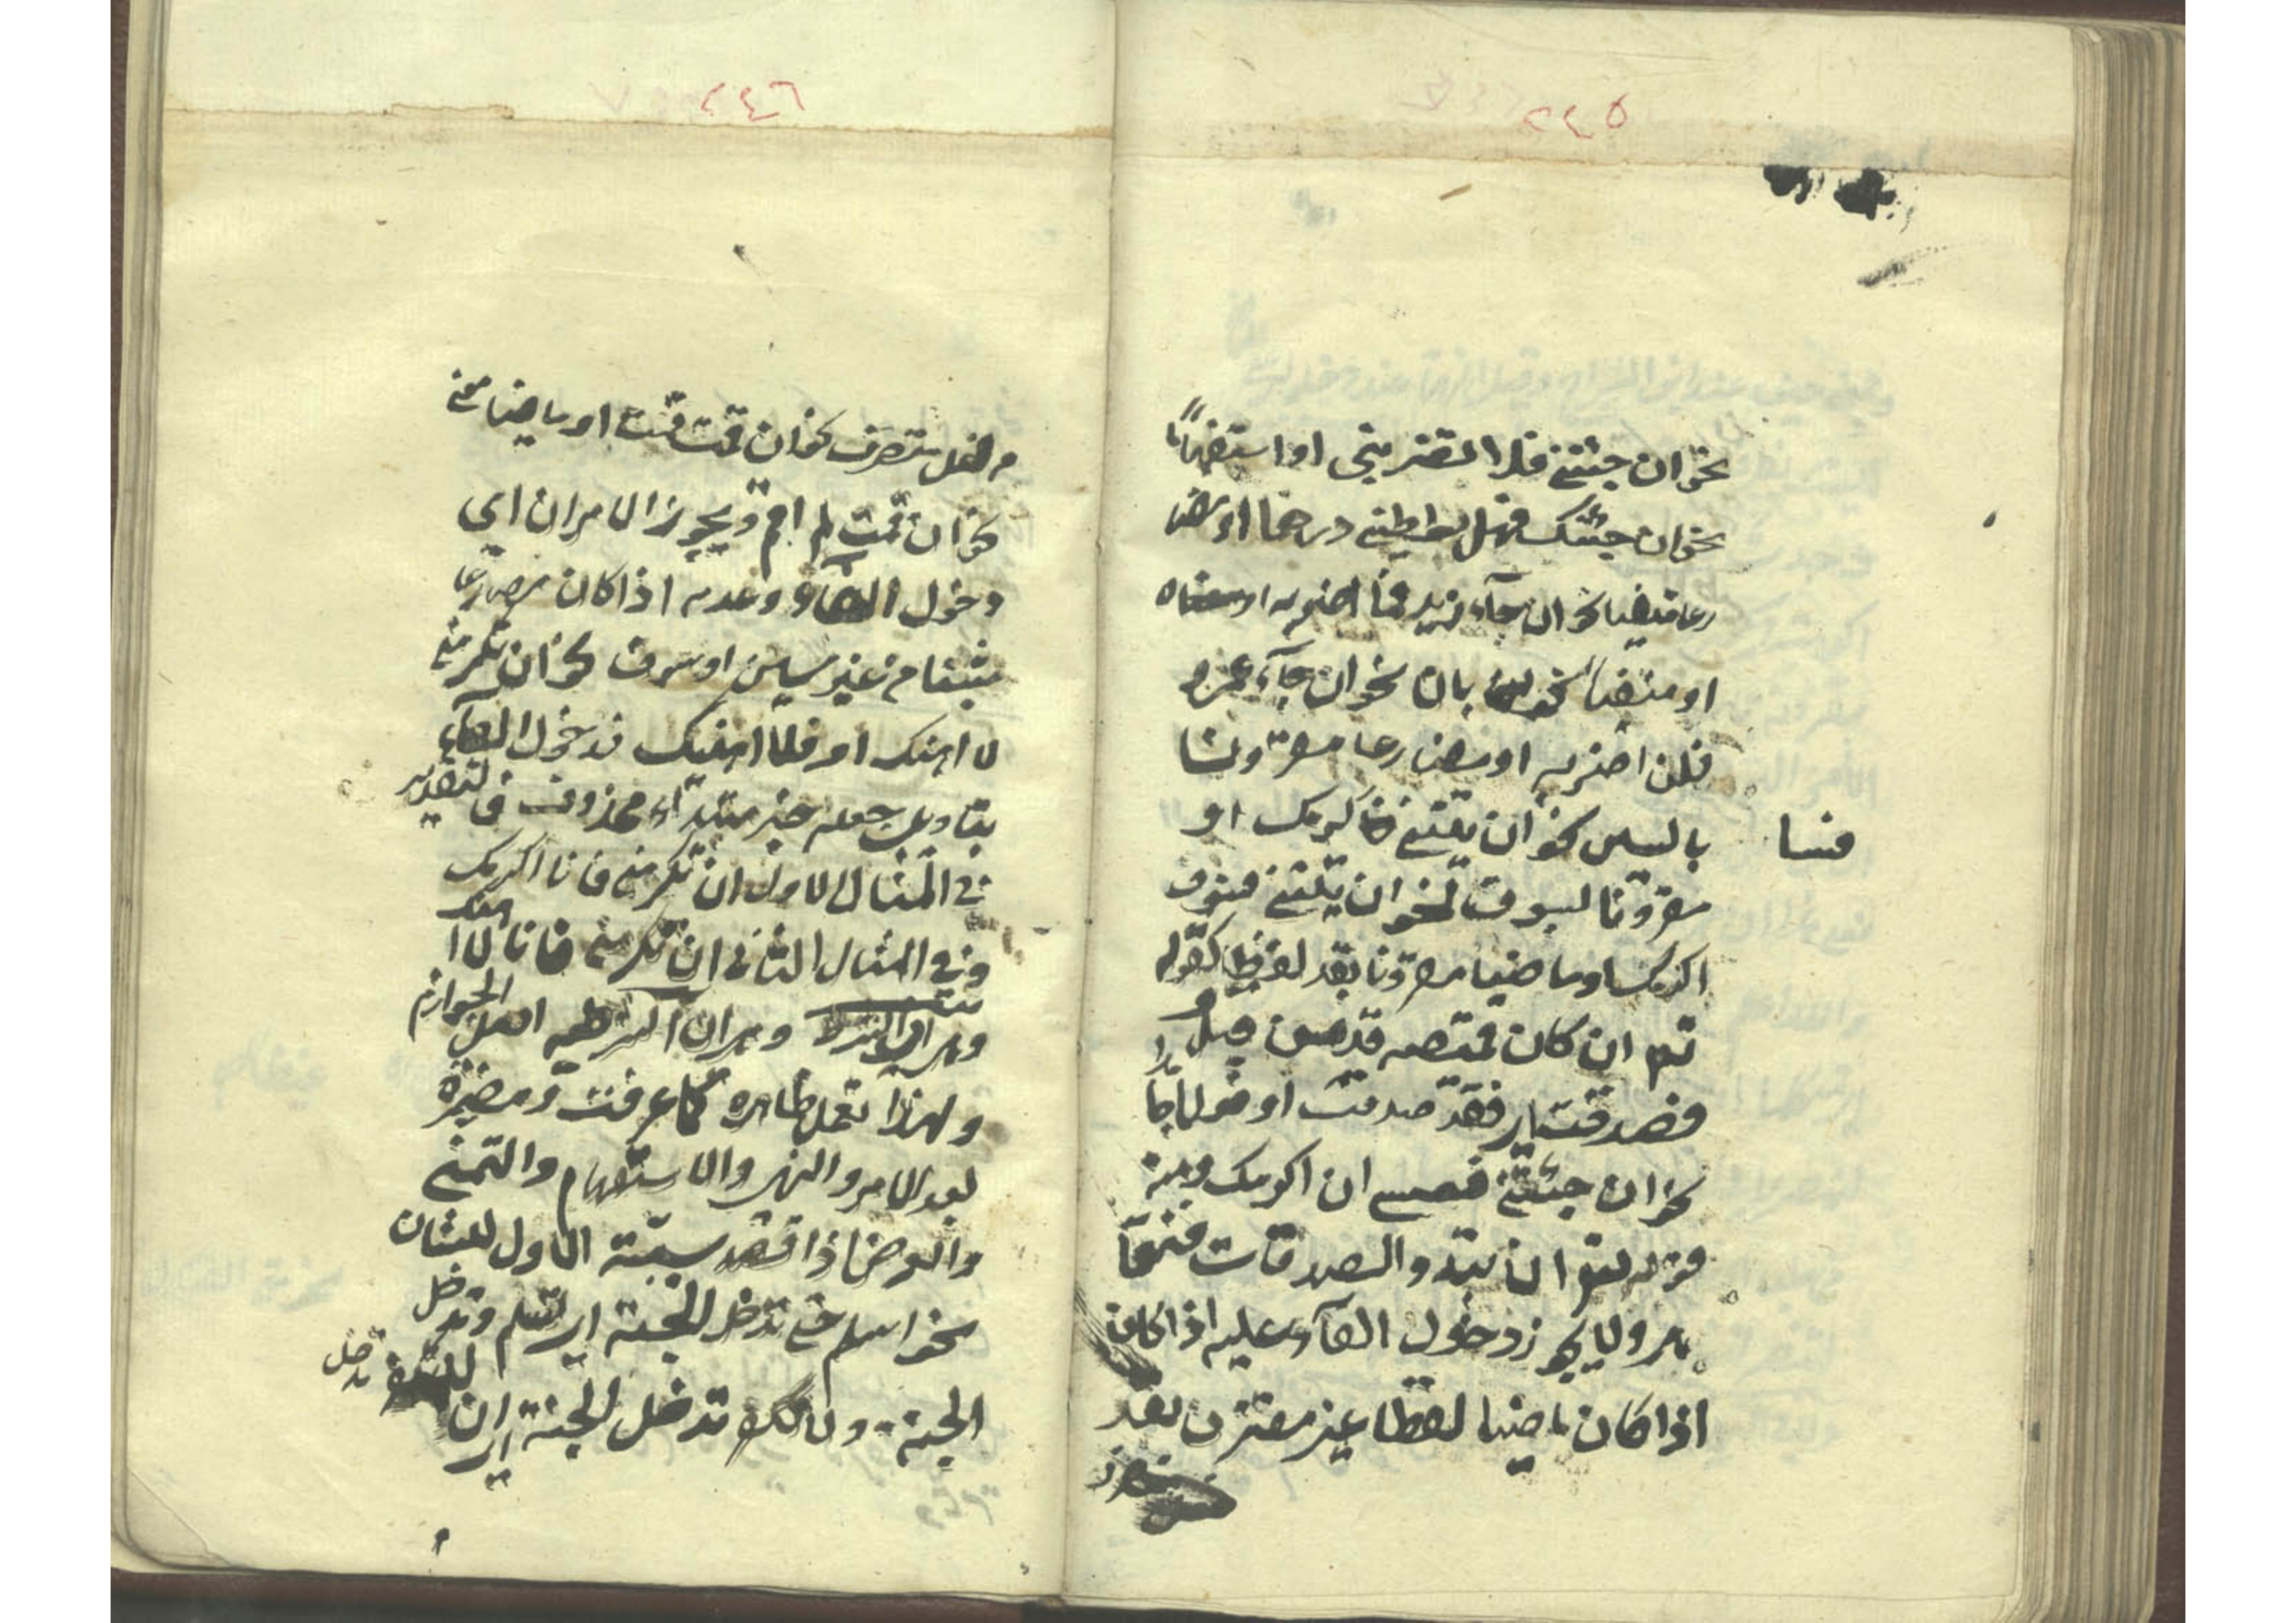 ٢٤٥
نحو ان جئتني فلا تضربني او استفهاما
نحو ان جئتك فهل تعطيني درهما او مضا
رعا منفيا نحو ان جاء زيد فما اضربه او معناه
او منفيا بلن نحو ان جاء عمرو
فلن اضربه او مضارعا مقرونا
بالسين نحو ان يقتني فسأكرمك او
مقرونا لسوف نحو ان يلقني فسوف
اكرمك او ماضيا مقرونا بقد لفظا كقوله
تع ان كان قميصه قد من قبل
فصدقت اي فقد صدقت او فعلا جامدا
نحو ان جئتني فعسى ان اكرمك ومنه
قوله تع ان تبدو الصدقات فنعما
هي ولا يجوز دخول الفاء عليه اذا كان
اذا كان ماضيا لفظا غير مقترن بقد
٢٤٦
من فعل متصرف نحو ان قمت قمت او ماضيا معنى
نحو ان قمت لم اقم ويجوز الامران اي
دخول الفاء وعدمه اذا كان مضارعا
مثبتا من غير سين او سوف نحو ان تكرمني
لا اهنك او فلا اهنك فدخول الفاء
بتاويل جعله خبر مبتداء محذوف فالتقدير
في المثال الاول ان تكرمني فانا اكرمك
وفي المثال الثاني ان تكرمني فانا لا اهنك
وهي ان الشرطية اصل الجوازم
ولهذا تعمل ظاهرة كما عرفت ومضمرة
بعد الامر والنهي والاستفهام والتمني
والعرض اذا قصد سببية الاول للثان
نحو اسلم حتى تدخل الجنة اي تسلم وتدخل
الجنة ولا تكفر تدخل الجنة اي ان